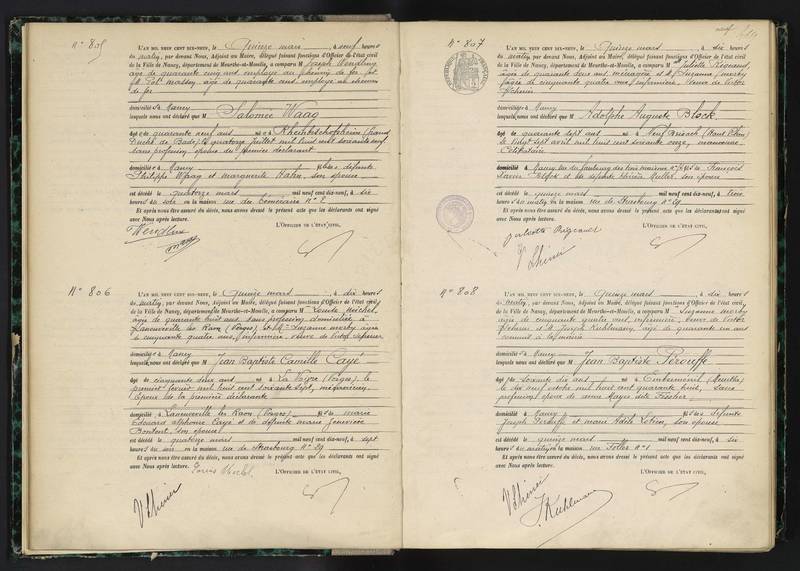 N° 805
L'AN MIL NEUF CENT DIX-NEUF, le Quinze mars, à neuf heures
du matin, par devant Nous, Adjoint au Maire, délégué faisant fonctions d'Officier de l'état civil
de la Ville de Nancy, département de Meurthe-et-Moselle, a comparu M Joseph Wendling
âgé de quarante cinq ans employé au chemin de fer
massy, âgé de quarante ans employé au chemin
de fer
domiciliés à Nancy
lesquels nous ont déclaré que M Salomée Waag
âgé e de quarante neuf ans né e à Rheinbischofsheim (grand
Duché de Bade) le quatorze juillet mil huit cent soixante neuf
sans profession, épouse du premier déclarant
domicilié e à Nancy fille de défunts
Philippe Waag et Marguerite Hahn, son épouse
est décédé e le quatorze mars mil neuf cent dix-neuf, à six
heures du soir en la maison rue du Téméraire N° 8
Et après nous être assuré du décès, nous avons dressé le présent acte que les déclarants ont signé
avec Nous après lecture.
L'OFFICIER DE L'ÉTAT CIVIL,
N° 806
L'AN MIL NEUF CENT DIX-NEUF, le Quinze mars, à dix heures
du matin, par devant Nous, Adjoint au Maire, délégué faisant fonctions d'Officier de l'état civil
de la Ville de Nancy, département de Meurthe-et-Moselle, a comparu M
âgée de quarante huit ans sans profession domiciliée à
Laneuveville les Raon (Vosges) et Suzanne morby âgée
de cinquante quatre ans, infirmière, veuve de Victor
domiciliés à Nancy
lesquels nous ont déclaré que M Jean Baptiste Camille Cayé
âgé de cinquante deux ans né à La Voivre (Vosges), le
premier février mil huit cent soixante sept,
Epoux de la première déclarante
domicilié à Laneuveville les Raon (Vosges) fils de
Edouard Alphonse Cayé et de défunte Marie Geneviève
son épouse
est décédé le quatorze mars mil neuf cent dix-neuf, à sept
heures du soir en la maison rue de Strasbourg N° 29
Et après nous être assuré du décès, nous avons dressé le présent acte que les déclarants ont signé
avec Nous après lecture.
L'OFFICIER DE L'ÉTAT CIVIL,
N° 807
L'AN MIL NEUF CENT DIX-NEUF, le Quinze mars, à dix heures
du matin, par devant Nous, Adjoint au Maire, délégué faisant fonctions d'Officier de l'état civil
de la Ville de Nancy, département de Meurthe-et-Moselle, a comparu M Juliette
âgée de quarante deux ans ménagère et Suzanne morby
âgée de cinquante quatre ans, infirmière, veuve de Victor
domiciliés à Nancy
lesquels nous ont déclaré que M Adolphe Auguste Block
âgé de quarante sept ans né à Neuf Brisach (Haut Rhin)
le vingt sept avril mil huit cent soixante onze, manoeuvre
Célibataire
domicilié à Nancy, rue du faubourg des trois maisons fils de François
Xavier Block et de défunte Thérèse Muller, son épouse
est décédé le quinze mars mil neuf cent dix-neuf, à trois
heures du matin en la maison rue de Strasbourg N° 29
Et après nous être assuré du décès, nous avons dressé le présent acte que les déclarants ont signé
avec Nous après lecture.
L'OFFICIER DE L'ÉTAT CIVIL,
N° 808
L'AN MIL NEUF CENT DIX-NEUF, le Quinze mars, à dix heures
du matin, par devant Nous, Adjoint au Maire, délégué faisant fonctions d'Officier de l'état civil
de la Ville de Nancy, département de Meurthe-et-Moselle, a comparu M Suzanne morby
âgée de cinquante quatre ans, infirmière, veuve de Victor
et Joseph Kuhlmann, âgé de quarante un ans
commis à la mairie
domiciliés à Nancy
lesquels nous ont déclaré que M Jean Baptiste Pérouffe
âgé de soixante dix ans né à (Meurthe)
le dix neuf octobre mil huit cent quarante huit, sans
profession, époux de Anne Mayer dite Fischer
domicilié à Nancy fils de défunts
Joseph Pérouffe et Marie Adèle son épouse
est décédé le quinze mars mil neuf cent dix-neuf, à six
heures du matin en la maison rue Foller N° 1
Et après nous être assuré du décès, nous avons dressé le présent acte que les déclarants ont signé
avec Nous après lecture.
L'OFFICIER DE L'ÉTAT CIVIL,
J. Kuhlmann